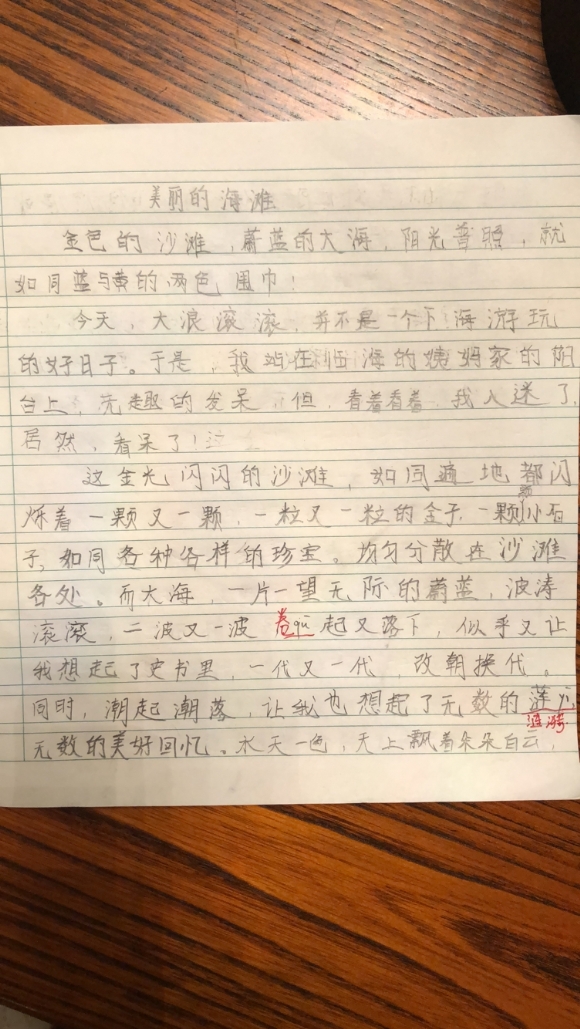 美丽的海滩
金色的沙滩,蔚蓝的大海,阳光普照,就
如同蓝与黄的两色围巾!
今天,大浪滚滚,并不是一个下海游玩
的好日子。于是,我站在临海的姨妈家的阳
台上,无趣的发呆 但,看着看着,我入迷了,
居然,看呆了!
这金光闪闪的沙滩,如同遍地都闪
烁着一颗又一颗,一粒又一粒的金子,一颗颗小石
子,如同各种各样的珍宝。均匀分散在沙滩
各处。而大海,一片一望无际的蔚蓝,波涛
滚滚,一波又一波卷qu起又落下,似乎又让
我想起了史书里,一代又一代,改朝换代。
同时,潮起潮落,让我也想起了无数的
涟漪
无数的美好回忆。水天一色,天上飘着朵朵白云,